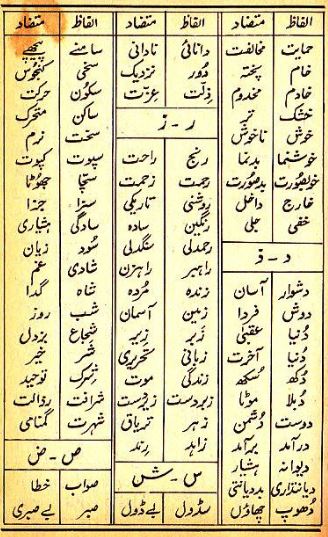 الفاظ متضاد
حمایت مخالفت
خام پختہ
خادم مخدوم
خشک تر
خوش ناخوش
خوشنما بدنما
خوبصورت بدصورت
خارج داخل
خفی جلی
د - ذ
دشوار آسان
دوش فردا
دُنیا عقبیٰ
دُنیا آخرت
دُکھ سُکھ
دُبلا موٹا
دوست دُشمن
درآمد برآمد
دیوانہ ہشیار
دیانتداری بددیانتی
دُھوپ چھاؤں
الفاظ متضاد
دانائی نادانی
دُور نزدیک
ذِلّت عزّت
ر - ز
رنج راحت
رحمت زحمت
روشنی تاریکی
رنگین سادہ
رحمدلی سنگدلی
راہبر راہزن
زندہ مُردہ
زمین آسمان
زَبر زیر
زبانی تحریری
زندگی موت
زبردست زیردست
زہر تریاق
زاہد رِند
س - ش
سڈول بےڈول
الفاظ متضاد
سامنے پیچھے
سخی کنجوس
سکُون حرکت
ساکن متحرک
سخت نرم
سپوت کپوت
سچّا جھُوٹا
سزا جزا
سادگی ہشیاری
سُود زیان
شادی غم
شاہ گدا
شب روز
شجاع بزدل
شر خیر
شِرک توحید
شرافت رذالت
شہرت گمنامی
ص - ض
صواب خطا
صبر بےصبری